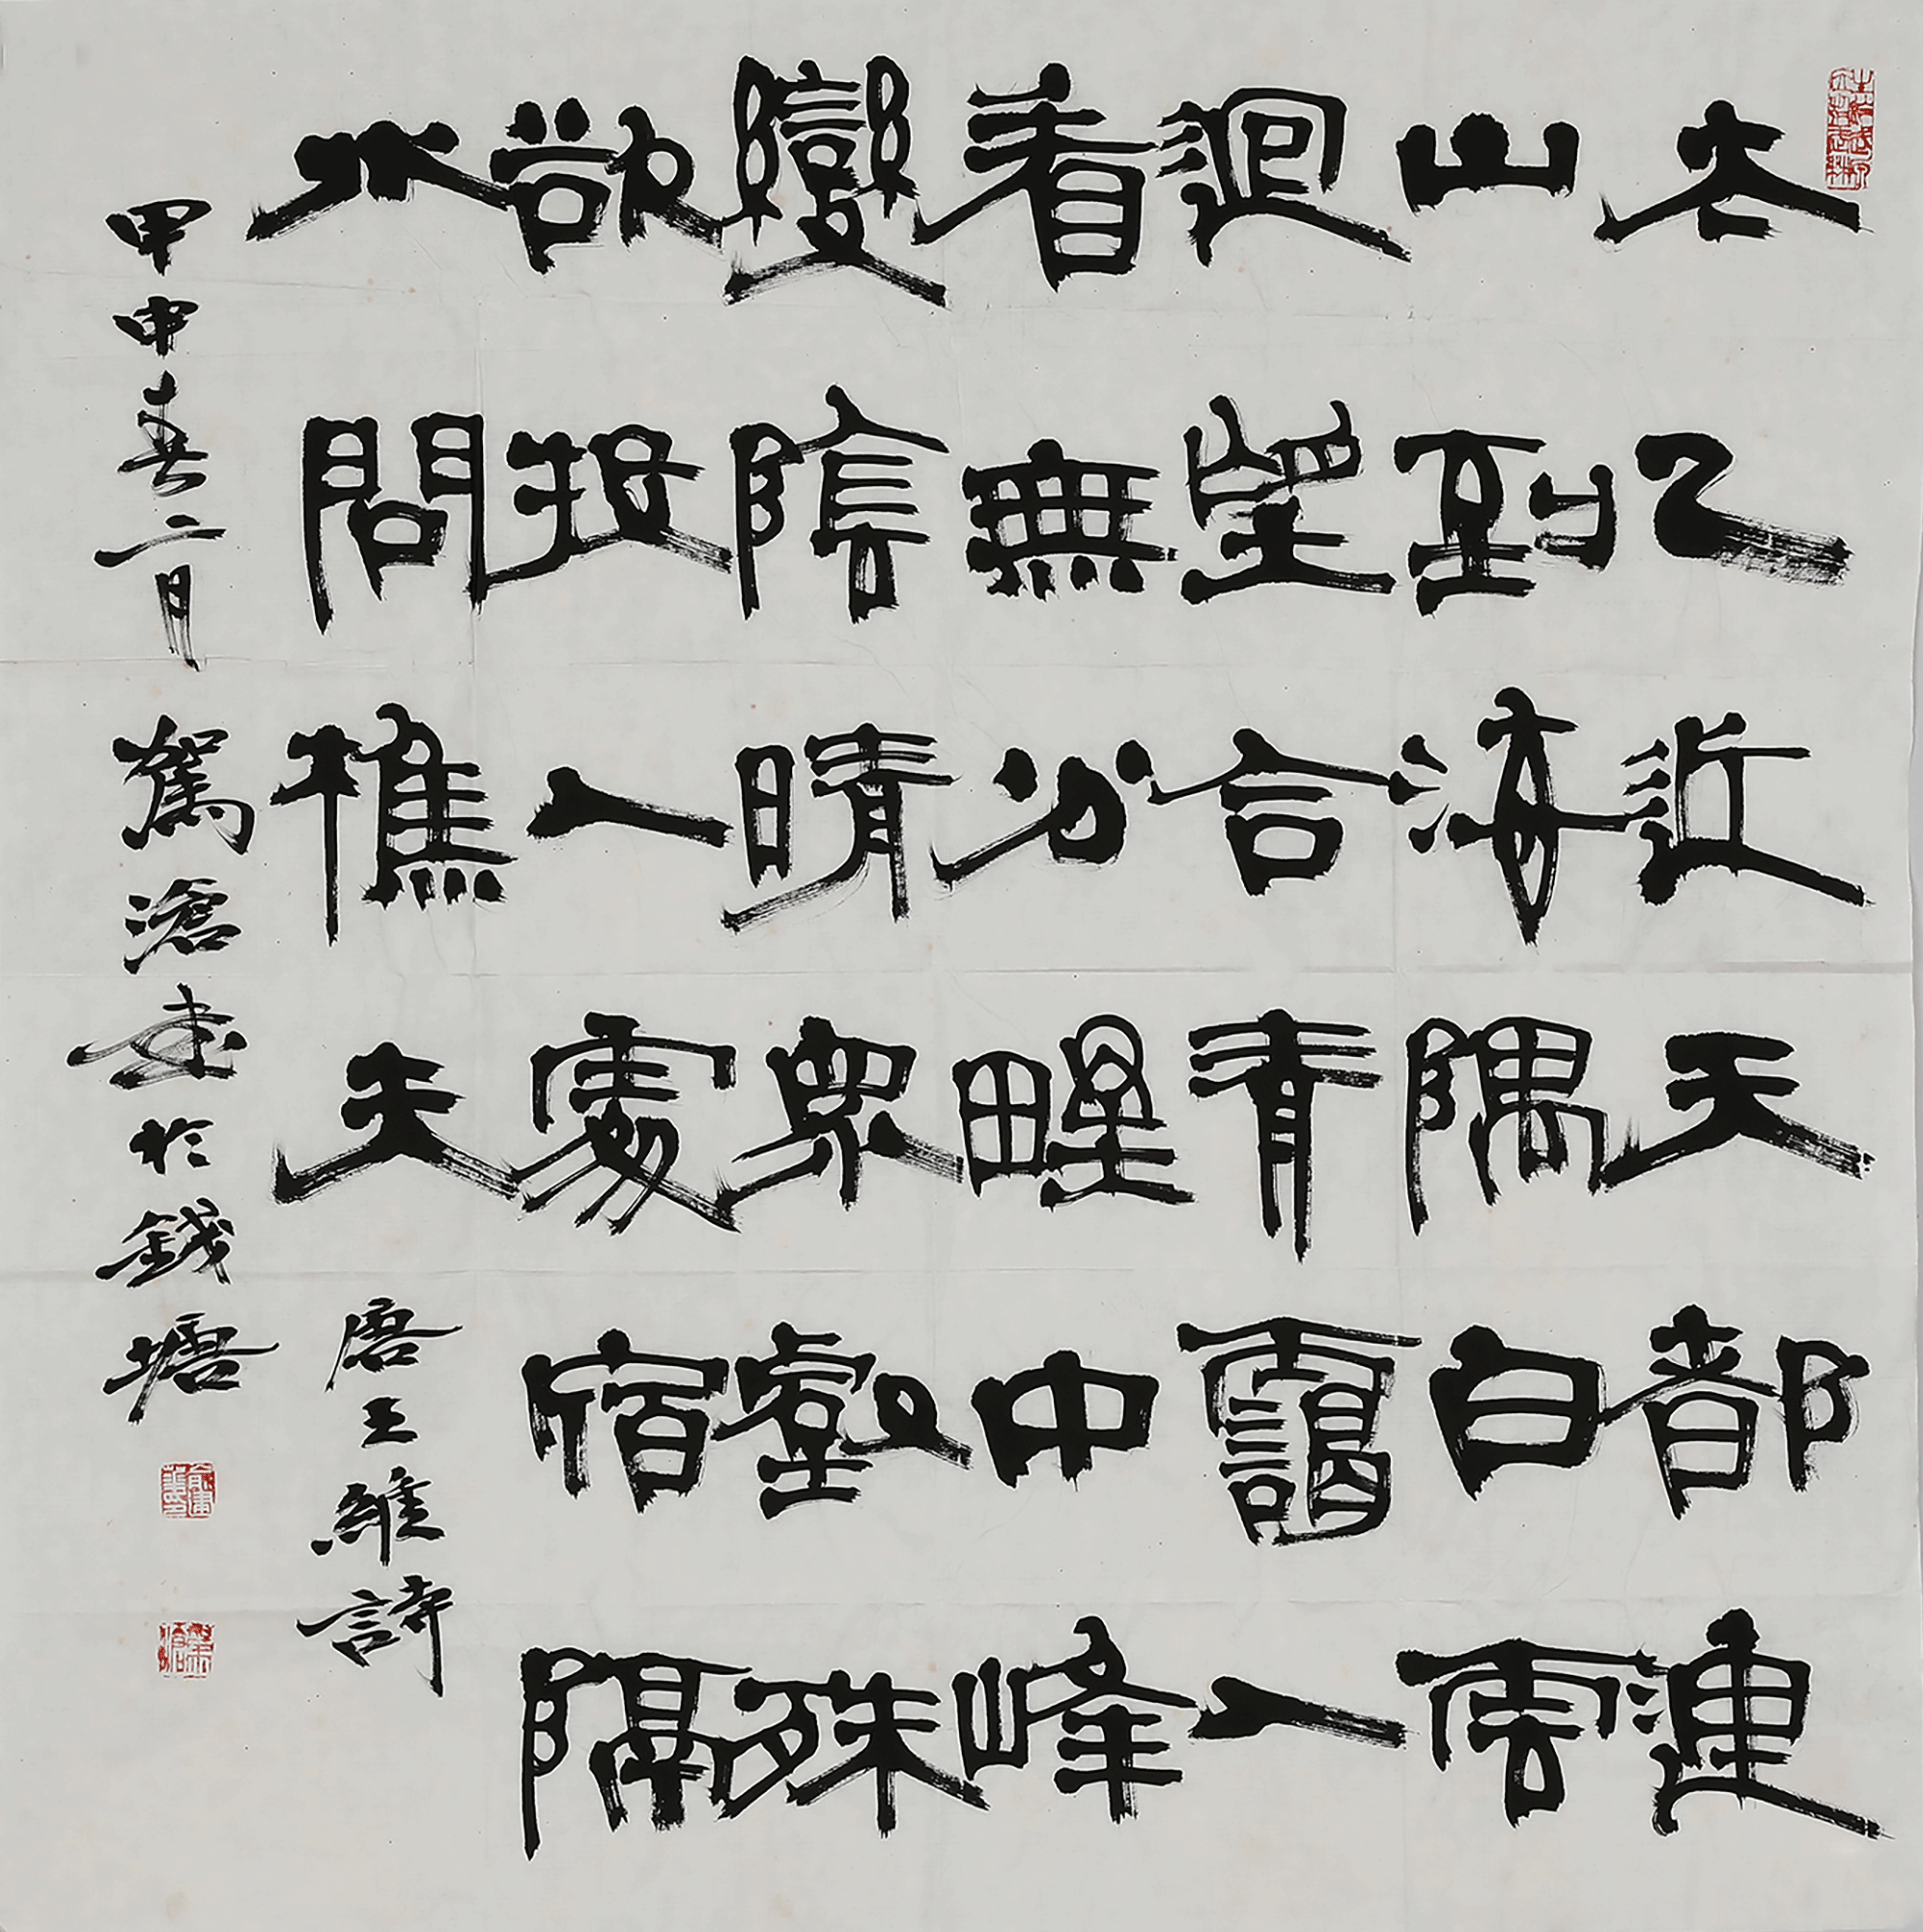 太乙近天都連
山到海隅白雲
迴望合青靄入
看無分野中峰
變陰晴眾壑殊
欲投人處宿隔
水問樵夫 唐王維詩
甲申春二月 駕滄書於錢塘